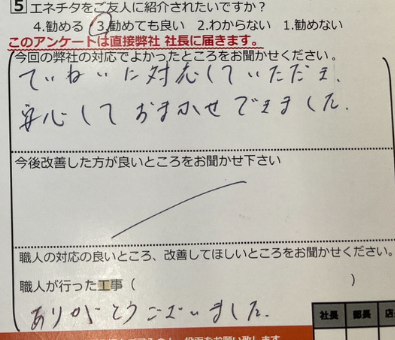 5 エネチタをご友人に紹介されたいですか?
4.勧める 3.勧めても良い 2.わからない 1.勧めない
このアンケートは直接弊社 社長に届きます。
今回の弊社の対応でよかったところをお聞かせください。
ていねいに対応していただき、
安心しておまかせできました。
今後改善した方が良いところをお聞かせ下さい
職人の対応の良いところ、改善してほしいところをお聞かせください。
職人が行った工事( )
ありがとうございました。
社長 部長 店